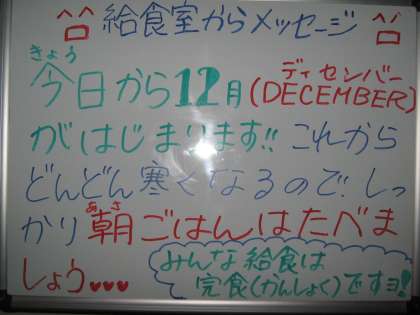 給食室からメッセージ
きょう ディセンバー
今日から12月(DECEMBER)
がはじまります!! これから
どんどん寒くなるので、しっ
あさ
かり朝ごはんはたべま
しょう♥♥♥
みんな給食は
完食(かんしょく)ですヨ!